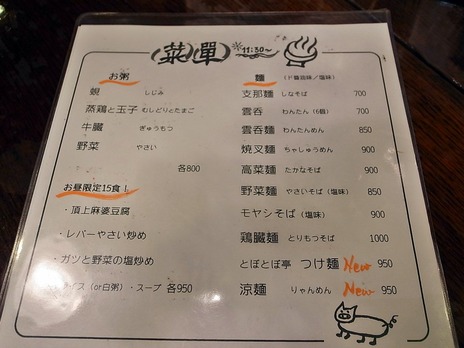 菜單 11:30〜
お粥
蜆 しじみ
蒸鶏と玉子 むしどりとたまご
牛臓 ぎゅうもつ
野菜 やさい
各800
お昼限定15食!
・頂上麻婆豆腐
・レバーやさい炒め
・ガツと野菜の塩炒め
イス(or白粥)・スープ 各950
麺 (醤油味/塩味)
支那麺 しなそば 700
雲呑 わんたん(6個) 700
雲呑麺 わんたんめん 850
焼叉麺 ちゃしゅうめん 900
高菜麺 たかなそば 900
野菜麺 やさいそば(塩味) 850
モヤシそば(塩味) 900
鶏臓麺 とりもつそば 1000
とぼとぼ亭 つけ麺 New 950
涼麺 りゃんめん New 950